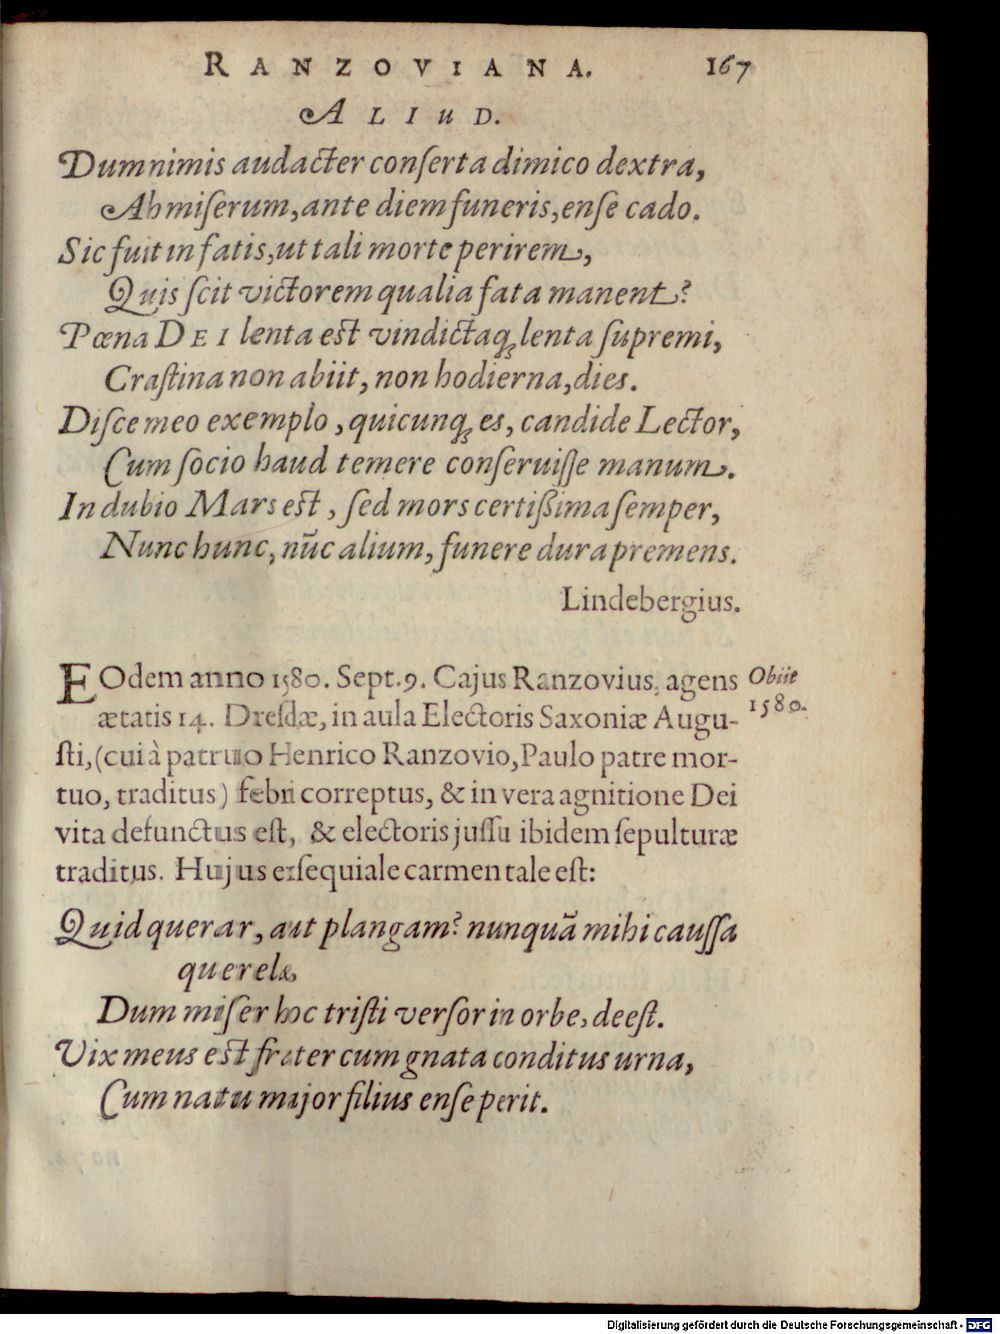 RANZOVIANA. 167
ALIUD.
Dum nimis audacter conſerta dimico dextra,
Ah miſerum, ante diem funeris, enſe cado.
Sic fuit in fatis, ut tali morte perirem,
Quis ſcit victorem qualia fata manent?
Pœna DEI lenta est vindictaq; lenta ſupremi,
Craſtina non abiit, non hodierna, dies.
Diſce meo exemplo, quicunq; es, candide Lector,
Cum ſocio haud temere conſeruiſſe manum.
In dubio Mars est, ſed mors certißima ſemper,
Nunc hunc, nūc alium, funere dura premens.
Lindebergius.
EOdem anno 1580. Sept. 9. Cajus Ranzovius, agens
ætatis 14. Dreſdæ, in aula Electoris Saxoniæ Augu-
ſti, (cui à patruo Henrico Ranzovio, Paulo patre mor-
tuo, traditus) febri correptus, & in vera agnitione Dei
vita defunctus eſt, & electoris juſſu ibidem ſepulturæ
traditus. Hujus exſequiale carmen tale eſt:
Obiit
1580.
Quid querar, aut plangam? nunquā mihi cauſſa
querelæ,
Dum miſer hoc triſti verſor in orbe, deeſt.
Vix meus est frater cum gnata conditus urna,
Cum natu major filius enſe perit.
Digitalisierung gefördert durch die Deutsche Forschungsgemeinschaft - DFG